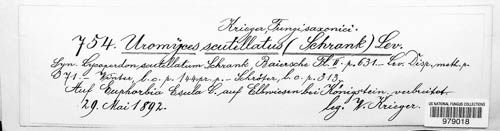 Krieger, Fungi saxonici.
754. Uromyces scutellatus (Schrank) Lev.
Syn. Lycoperdon scutellatum Schrank Baiersche Fl. II. p. 631. — Lev. Disp. meth. p.
371. — Winter, l. c. p. 144 pr. p. — Schröter, l. c. p. 313.
Auf Euphorbia Esula L., auf Elbwiesen bei Königstein, verbreitet.
29. Mai 1892. leg. W. Krieger.
US NATIONAL FUNGUS COLLECTIONS
979018